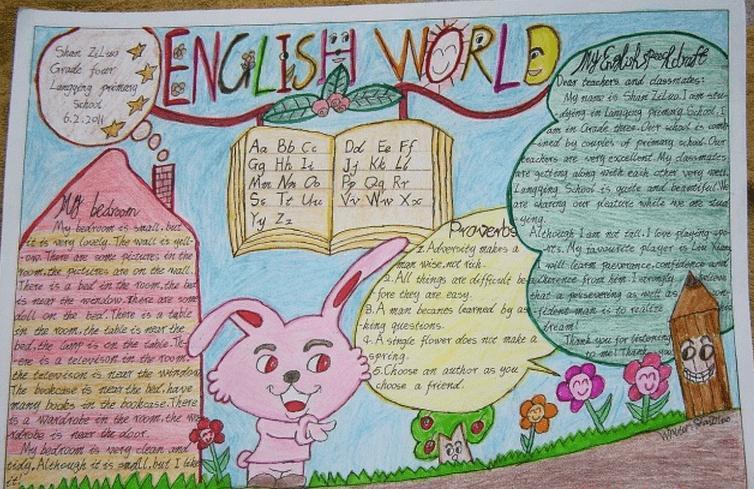 Shan ZiLuo
Grade four
Langqing primary
School
6.2.2011
ENGLISH WORLD
Aa Bb Cc
Gg Hh Ii
Mm Nn Oo
Ss Tt Uu
Yy Zz
Dd Ee Ff
Jj Kk Ll
Pp Qq Rr
Vv Ww Xx
My English speech draft
Dear teachers and classmates:
My name is Shan ZiLuo. I am stu-
-dying in Langqing primary School. I
am in Grade three. Our school is comb-
-ined by couples of primary school. Our
teachers are very excellent. My classmates
are getting along with each other very well.
Langqing School is quite and beautiful. We
are sharing our pleature while we are stud
-ying.
Although I am not tall, I love playing spo-
-rts. My favourite player is Liu Xiang
I will learn perverence, confidence and
from him. I strongly believe
that a persevering as well as con-
-fident man is to realize
dream!
Thank you for listening
to me! Thank you
My bedroom
My bedroom is small, but
it is very lovely. The wall is yell-
-ow. There are some pictures in the
room, the pictures are on the wall.
There is a bed in the room, the bed
is near the window. There are some
doll on the bed. There is a table
in the room, the table is near the
bed, the lamp is on the table. Th-
-ere is a televison in the room.
the televison is near the window
The bookcase is near the bed, have
many books in the bookcase. There
is a wardrobe in the room, the wa
rdrobe is near the door.
My bedroom is very clean and
tidy. Although it is small, but I like
it!
Proverbs
1. Adversity makes a
man wise, not rich.
2. All things are difficult be-
-fore they are easy.
3. A man becames learned by as
-king questions.
4. A single flower does not make a
spring.
5. Choose an author as you
choose a friend.